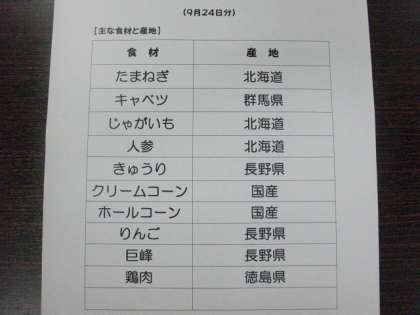 (9月24日分)
【主な食材と産地】
食 材 産 地
たまねぎ 北海道
キャベツ 群馬県
じゃがいも 北海道
人参 北海道
きゅうり 長野県
クリームコーン 国産
ホールコーン 国産
りんご 長野県
巨峰 長野県
鶏肉 徳島県